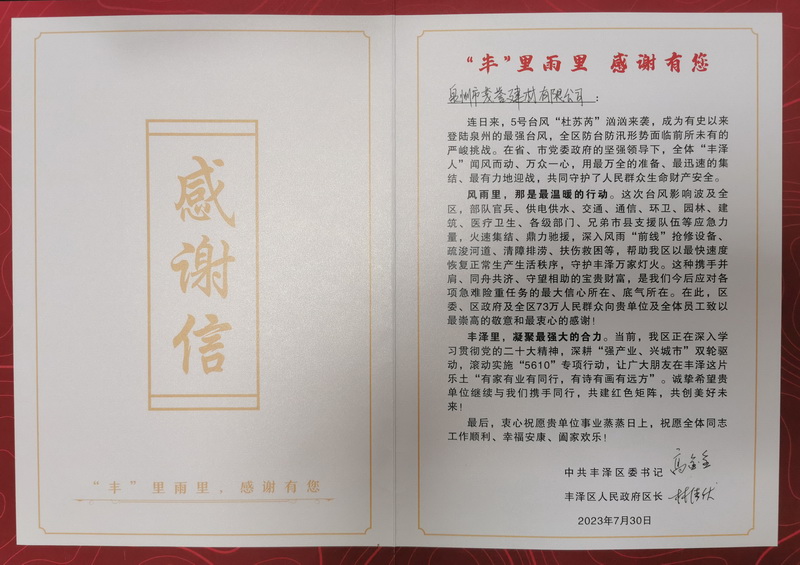 感谢信
“丰”里雨里，感谢有您
“丰”里雨里 感谢有您
泉州市 建材有限公司：
连日来，5号台风“杜苏芮”汹汹来袭，成为有史以来
登陆泉州的最强台风，全区防台防汛形势面临前所未有的
严峻挑战。在省、市党委政府的坚强领导下，全体“丰泽
人”闻风而动、万众一心，用最万全的准备、最迅速的集
结、最有力地迎战，共同守护了人民群众生命财产安全。
风雨里，那是最温暖的行动。这次台风影响波及全
区，部队官兵、供电供水、交通、通信、环卫、园林、建
筑、医疗卫生、各级部门、兄弟市县支援队伍等应急力
量，火速集结、鼎力驰援，深入风雨“前线”抢修设备、
疏浚河道、清障排涝、扶伤救困等，帮助我区以最快速度
恢复正常生产生活秩序，守护丰泽万家灯火。这种携手并
肩、同舟共济、守望相助的宝贵财富，是我们今后应对各
项急难险重任务的最大信心所在、底气所在。在此，区
委、区政府及全区73万人民群众向贵单位及全体员工致以
最崇高的敬意和最衷心的感谢！
丰泽里，凝聚最强大的合力。当前，我区正在深入学
习贯彻党的二十大精神，深耕“强产业、兴城市”双轮驱
动，滚动实施“5610”专项行动，让广大朋友在丰泽这片
乐土“有家有业有同行，有诗有画有远方”。诚挚希望贵
单位继续与我们携手同行，共建红色矩阵，共创美好未
来！
最后，衷心祝愿贵单位事业蒸蒸日上，祝愿全体同志
工作顺利、幸福安康、阖家欢乐！
中共丰泽区委书记
丰泽区人民政府区长 林伟伏
2023年7月30日